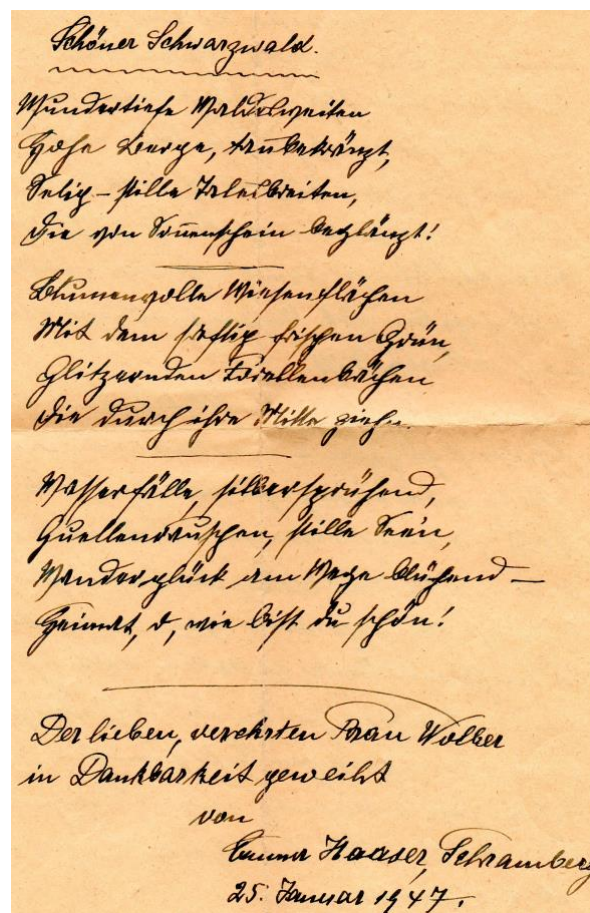 Schöner Schwarzwald.
Wundertiefe Waldesweiten
Hohe Berge, tannbekränzt,
Selig-stille Talesbreiten,
Die von Sonnenschein beglänzt!
Blumenvolle Wiesenflächen
Mit dem saftig frischen Grün,
Glitzernden Forellenbächen
Die durch ihre Mitte ziehn.
Wasserfälle, silbersprühend,
Quellenrauschen, stille Seen,
Wanderglück am Wege blühend –
Heimat, o, wie bist du schön!
Der lieben, verehrten Frau Wolber
in Dankbarkeit geweiht
von
Haaser, Schramberg
25. Januar 1947.